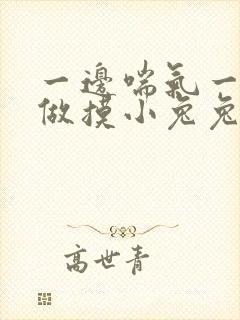 一邊喘氣一
做摸小兔兔
高世青